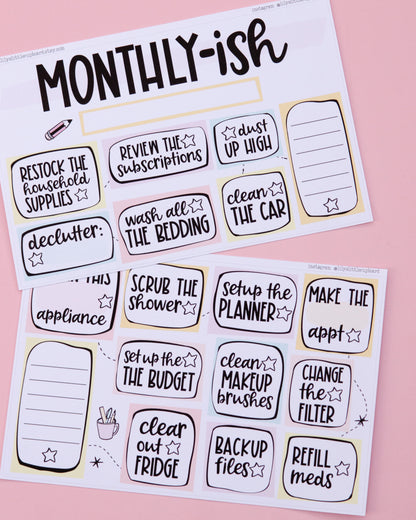 MONTHLY-ish
RESTOCK THE
household
SUPPLIES
REVIEW THE
subscriptions
dust
UP HIGH
declutter:
wash all
THE BEDDING
clean
THE CAR
THIS
appliance
SCRUB THE
shower
setup the
PLANNER
MAKE THE
appt
set up the
THE BUDGET
clean
MAKEUP
brushes
CHANGE
the
FILTER
clear
out
FRIDGE
BACKUP
files
REFILL
meds